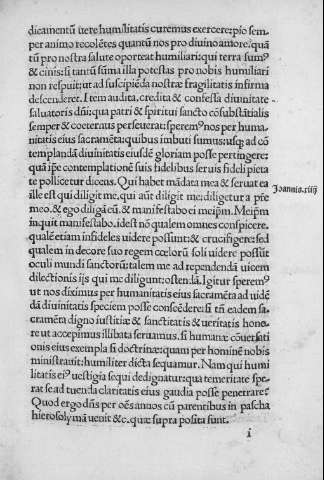 dicamentũ uere humilitatis curemus exercere; pio sem
per animo recolẽtes quantũ nos pro diuino amore, quã
tũ pro nostra salute oporteat humiliari; qui terra sum⁹
& cinis; si tantũ sũma illa potestas pro nobis humiliari
non respuit; ut ad suscipiẽda nostræ fragilitatis infirma
descenderet. Item audita, credita & confessa diuinitate
saluatoris dñi; qua patri & spiritui sancto cõsubstãtialis
semper & coeternus perseuerat; sperem⁹ nos per huma
nitatis eius sacramẽta; quibus imbuti sumus; usq; ad cõ
templandã diuinitatis eiusdẽ gloriam posse pertingere;
quã ip̃e contemplationẽ suis fidelibus seruis fideli pieta
te pollicetur dicens. Qui habet mãdata mea & seruat ea
ille est qui diligit me, qui aũt diligit me; diligetur a p̃re
meo. & ego diligã eũ, & manifestabo ei meip̃m. Meip̃m
inquit manifestabo. idest nõ qualem omnes conspicere.
qualẽ etiam infideles uidere possunt; & crucifigere; sed
qualem in decore suo regem cœlorũ soli uidere possũt
oculi mundi sanctorũ; talem me ad rependendã uicem
dilectionis ijs qui me diligunt; ostendã. Igitur sperem⁹
ut nos diximus per humanitatis eius sacramẽta ad uidẽ
dã diuinitatis speciem posse conscẽdere; si tñ eadem sa
cramẽta digno iustitiæ & sanctitatis & ueritatis hono
re ut accepimus illibata seruamus. si humanæ cõuersati
onis eius exempla si doctrinæ; quam per hominẽ nobis
ministrauit; humiliter dicta sequamur. Nam qui humi
litatis ei⁹ uestigia sequi dedignatur; qua temeritate spe
rat se ad tuenda claritatis eius gaudia posse penetrare?
Quod ergo dñs per oẽs annos cũ parentibus in pascha
hierosolymã uenit &c. quæ supra posita sunt.
Joannis. xiiij
i